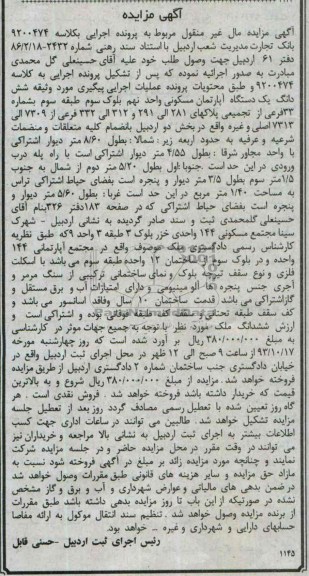 آگهی مزایده
آگهی مزایده مال غیر منقول مربوط به پرونده اجرایی بکلاسه ۹۲۰۰۴۷۴
بانک تجارت مدیریت شعب اردبیل با استناد سند رهنی شماره ۲۴۳۲-۸۶/۲/۱۸
دفتر ۶۱ اردبیل جهت وصول طلب خود علیه آقای حسینعلی گل محمدی
مبادرت به صدور اجرائیه نموده که پس از تشکیل پرونده اجرایی به کلاسه
۹۲۰۰۴۷۴ و طبق محتویات پرونده عملیات اجرایی پیگیری مورد وثیقه شش
دانگ یک دستگاه آپارتمان مسکونی واحد نهم بلوک سوم طبقه سوم بشماره
۳۳فرعی از تجمیعی پلاکهای ۲۸۱ الی ۲۹۱ و ۳۱۲ الی ۳۳۲ فرعی از ۷۳۰۹ الی
۷۳۱۳ اصلی و غیره واقع در بخش دو اردبیل بانضمام کلیه متعلقات و منضمات
شرعیه و عرفیه به حدود اربعه زیر: شمالا: بطول ۸/۶۰ متر دیوار اشتراکی
با واحد مجاور شرقا: بطول ۴/۵۵ متر دیوار اشتراکی است با راه پله درب
ورودی در این حد است جنوبا: اول بطول ۵/۲۰ متر دوم از شمال به جنوب
۱/۵متر سوم بطول ۳/۵ متر دیوار و پنجره است بفضای حیاط اشتراکی تراس
به مساحت ۱/۴۰ متر مربع در این حد است غربا: بطول ۵/۶۰ متر دیوار و
پنجره است بفضای حیاط اشتراکی که در صفحه ۱۸۲دفتر ۳۲۶بنام آقای
حسینعلی گلمحمدی ثبت و سند صادر گردیده به نشانی اردبیل - شهرک
سینا مجتمع مسکونی ۱۴۴ واحدی خزر بلوک ۳ طبقه ۳ واحد ۹که طبق نظریه
کارشناس رسمی دادگستری ملک موصوف واقع در مجتمع آپارتمانی ۱۴۴
واحده و در بلوک سوم ساختمان ۱۲ واحده طبقه سوم می باشد با اسکلت
فلزی و نوع سقف تیرچه بلوک و نمای ساختمانی ترکیبی از سنگ مرمر و
آجری جنس پنجره ها آلو مینیومی و دارای امتیازات آب و برق مستقل و
گاز اشتراکی می باشد قدمت ساختمان ۱۰ سال وفاقد آسانسور می باشد و
کف سقف طبقه تحتانی و سقف کف طبقه فوقانی بوده و اشتراکی است و
ارزش ششدانگ ملک مورد نظر با توجه به جمیع جهات موثر در کارشناسی
به مبلغ ۳۸۰/۰۰۰/۰۰۰ ریال بر آورد شده است که روز چهارشنبه مورخه
۹۲/۱۰/۱۷ از ساعت ۹ صبح الی ۱۲ ظهر در محل اجرای ثبت اردبیل واقع در
خیابان دادگستری جنب ساختمان شماره ۲ دادگستری اردبیل از طریق مزایده
فروخته خواهد شد. مزایده از مبلغ ۳۸۰/۰۰۰/۰۰۰ ریال شروع و به بالاترین
قیمت که خریدار داشته باشد فروخته خواهد شد. فروش نقدی است. هر
گاه روز تعیین شده با تعطیل رسمی مصادف گردد روز بعد از تعطیل جلسه
مزایده تشکیل خواهد شد. طالبین می توانند در ساعات اداری جهت کسب
اطلاعات بیشتر به اجرای ثبت اردبیل به نشانی بالا مراجعه و خریداران نیز
می توانند در وقت مقرر در محل مزایده حاضر و در جلسه مزایده شرکت
نمایند و چنانچه مورد مزایده زائد بر مبلغ در آگهی فروخته شود نسبت به
مازاد حق مزایده و سایر هزینه های قانونی طبق مقررات وصول خواهد شد
در ضمن بدهی های مالیاتی و عوارض شهرداری و آب و برق و گاز مشخص
نشده در صورتیکه از این باب تا روز مزایده بدهی داشته باشد طبق مقررات
از برنده مزایده وصول خواهد شد. تنظیم سند انتقال موکول به ارائه مفاصا
حسابهای دارایی و شهرداری و غیره - خواهد بود.
رئیس اجرای ثبت اردبیل -حسنی قابل
۱۱۴۵